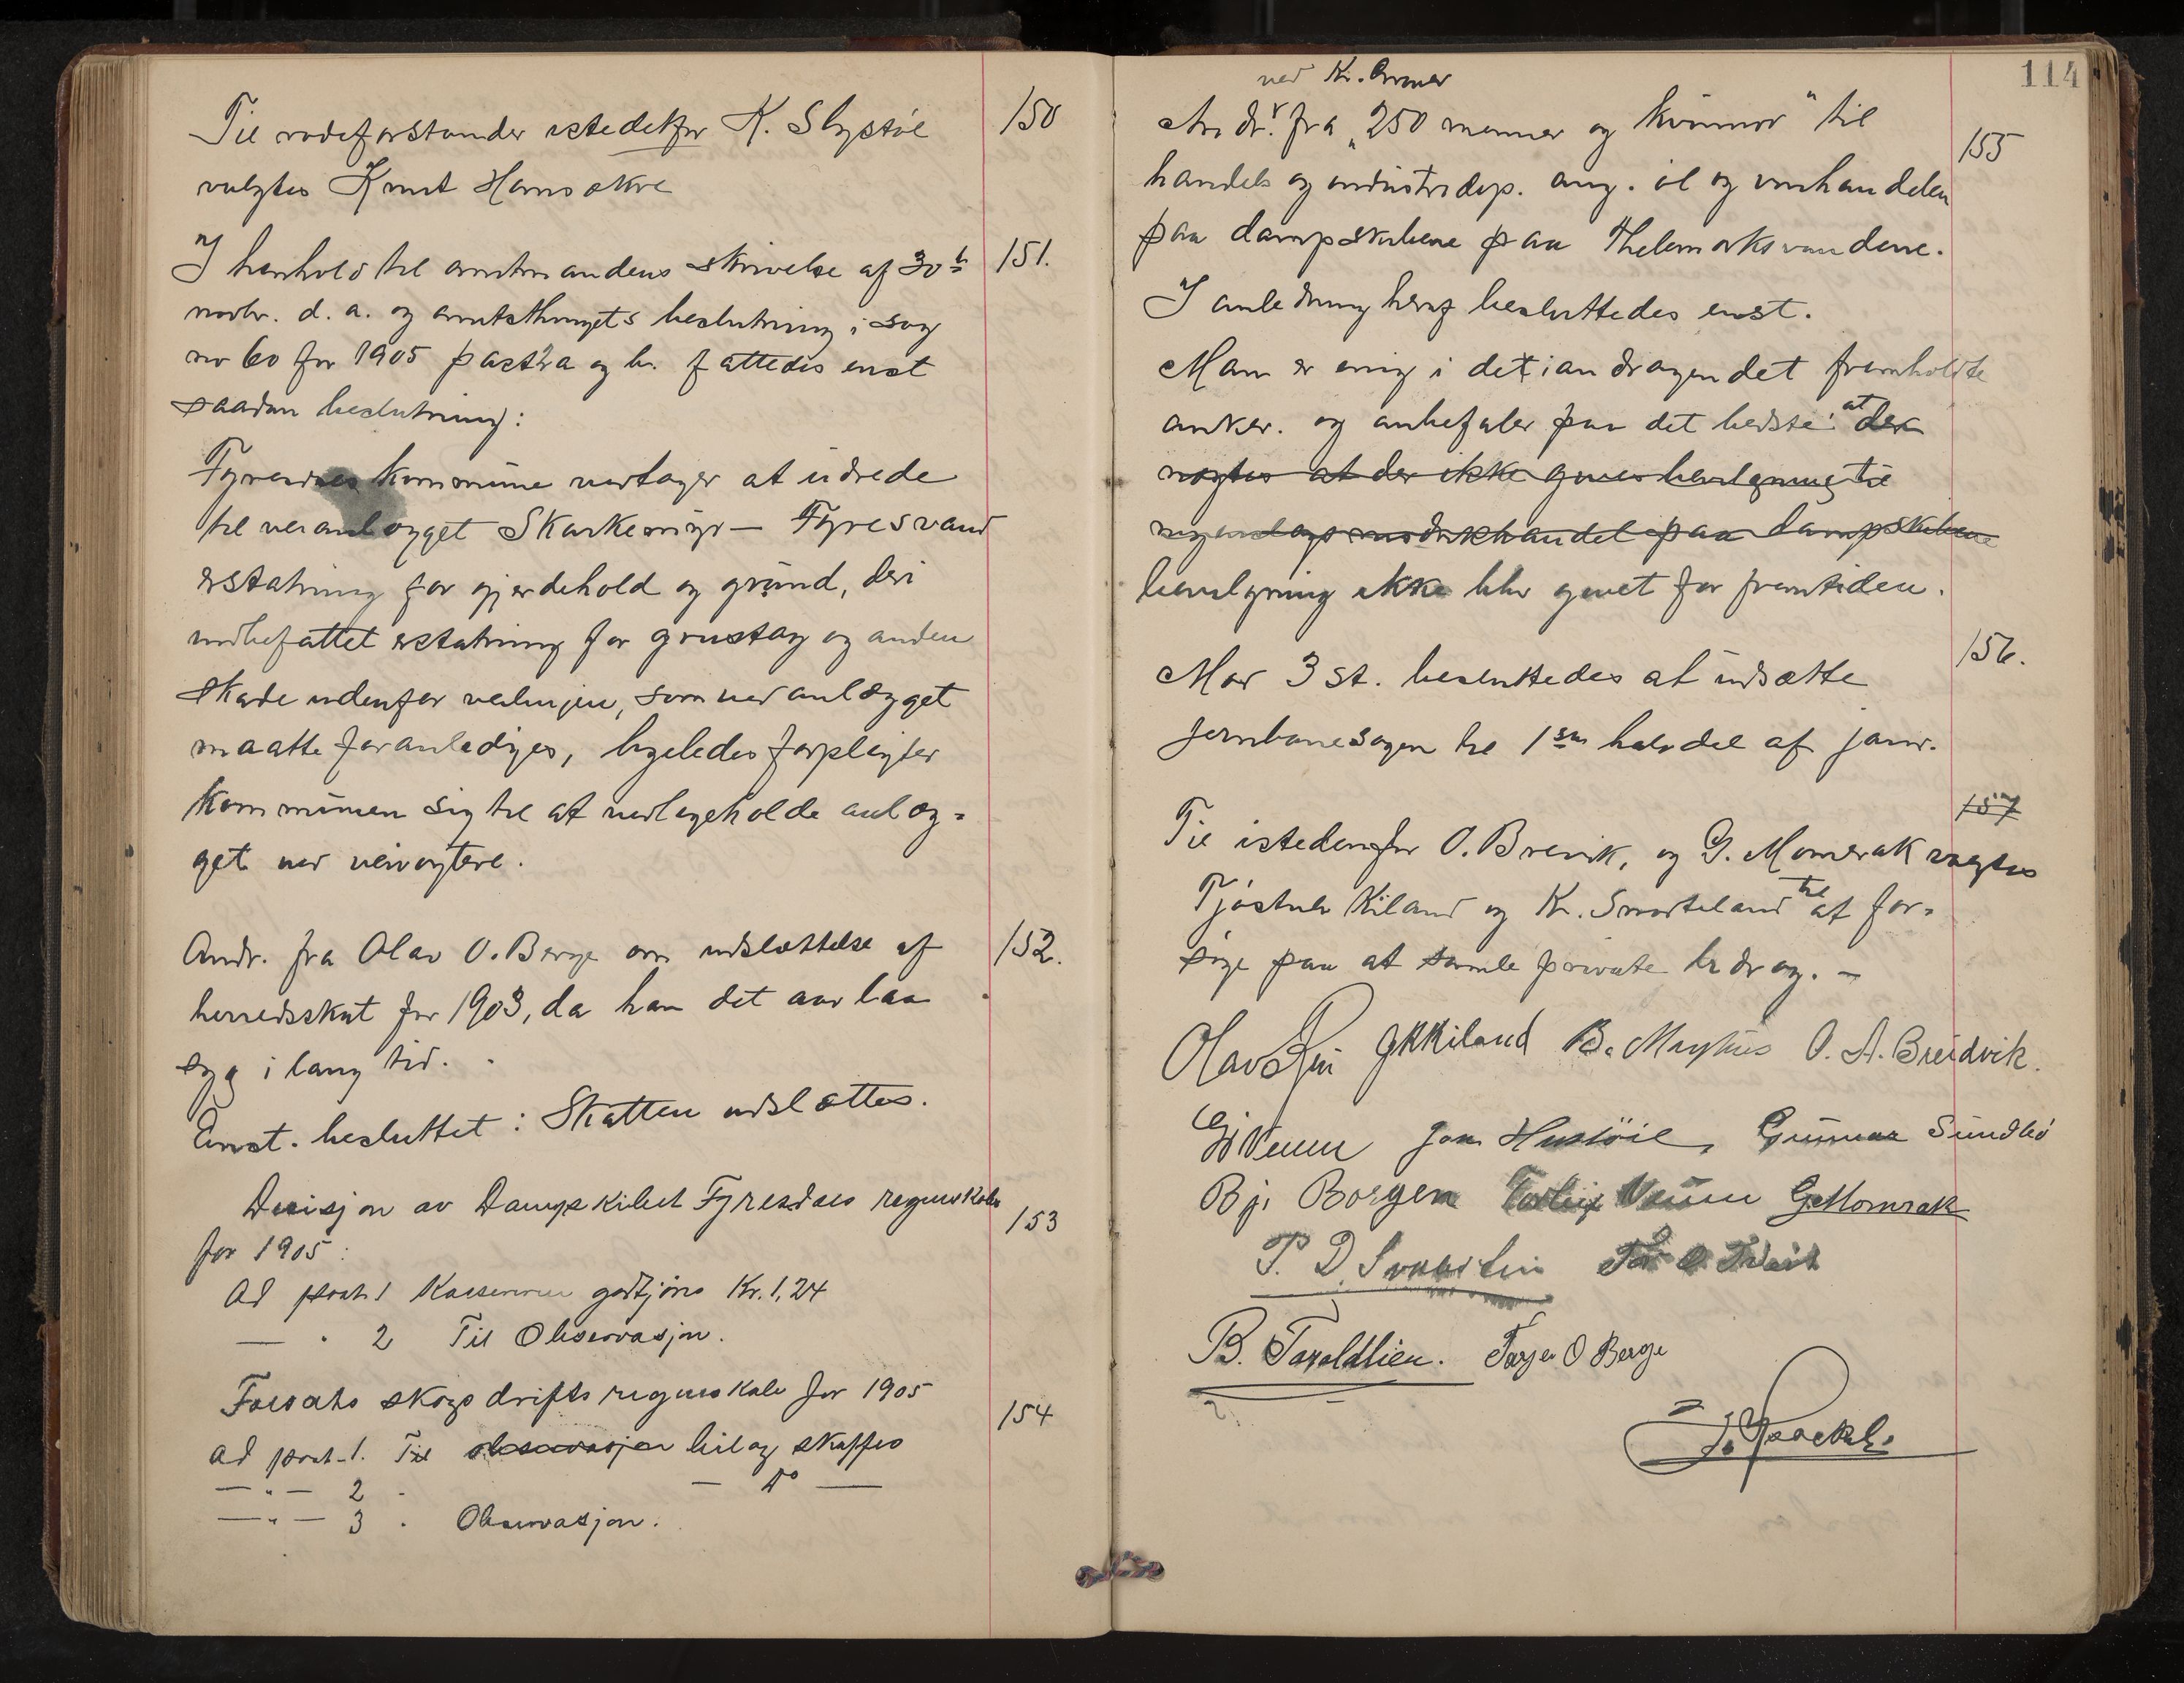 Til rodeforstander istedetfor K. Slystöl
150
valgtes Knut Hamsokre
I henhold til amtmandens skrivelse af 30te
151.
novbr. d. a. og amtsthingets beslutning i sag
no 60 for 1905 fattedes enst
saadan beslutning:
Fyresdals kommune vedtager at udrede
til veianlægget Skarkemyr — Fyresvand
erstatning for gjerdehold og grund, deri
indbefattet erstatning for grustag og anden
skade udenfor veilinjen, som ved anlægget
maatte foranlediges, ligeledes forpligter
kommunen sig til at vedligeholde anlæg-
get ved veivogtere.
Andr. fra Olav O. Berge om udslættelse af
152.
herredsskat for 1903, da han det aar laa
syg i lang tid.
Enst. besluttet: Skatten udslættes.
Desisjon av Dampskibet Fyresdals regnskaber
153
for 1905:
Ad post 1 Kassereren godtjöres Kr. 1,24
— " 2 Til Observasjon.
Foesats skogsdrifts regnskab for 1905
154
Ad post 1. Til observasjon bilag skaffes
— " — 2 - — do —
— " — 3 . Observasjon.
114
ved Kr.
Andr. fra "250 menner og kvinnor" til
155
handels og industridep. ang. öl og vinhandelen
paa dampskibene paa Thelemarksvandene.
I anledning heraf besluttedes enst.
Man er enig i det i andragendet fremholdte
anker. og anbefaler paa det bedste: at der
nægtes at der ikke gives bevilgning til
handel paa dampskibene
bevilgning ikke blir givet for fremtiden.
156.
Mod 3 st. besluttedes at udsætte
jernbanesagen til 1ste halvdel af janr.
157
Til istedenfor O. Breivik, og G. Momrak valgtes
Tjöstulv Kiland og Kr. Svarteland til at for-
söge paa at samle private bidrag. —
Olav GKKiland B. O. A. Breidvik.
G Veum Jon Hustöil, Gunnar Sundbö
Bj. Borgen Veum G Momrak
P. D. Svartin Tor O
B. Taraldlien. Torjer O Berge